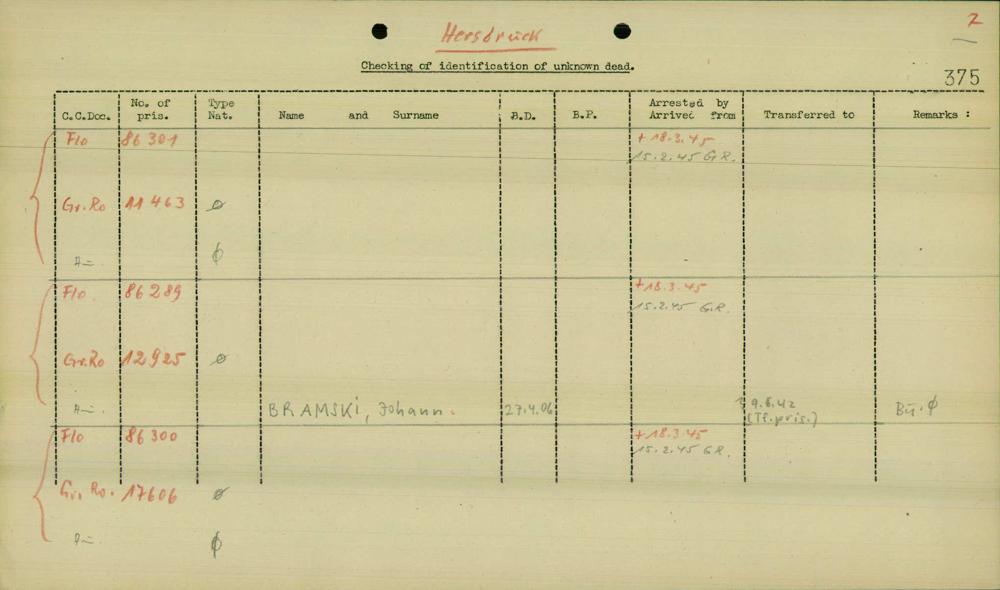 Hersdruck
2
Checking of identification of unknown dead.
375
C.C.Doc. No. of pris. Type Nat. Name and Surname B.D. B.P. Arrested by Arrived from Transferred to Remarks :
Flo 86 301 + 18.3.45
15.2.45 G.R.
Gr.Ro 11 463 ø
ϕ
Flo. 86 289 + 18.3.45
15.2.45 G.R.
Gr.Ro 12925 ø
BRAMSKI, Johann. 27.4.06 9.6.42 Bü. ϕ
(Tf.pris.)
Flo 86 300 + 18.3.45
15.2.45 G.R.
Gr. Ro. 17606 ø
ϕ